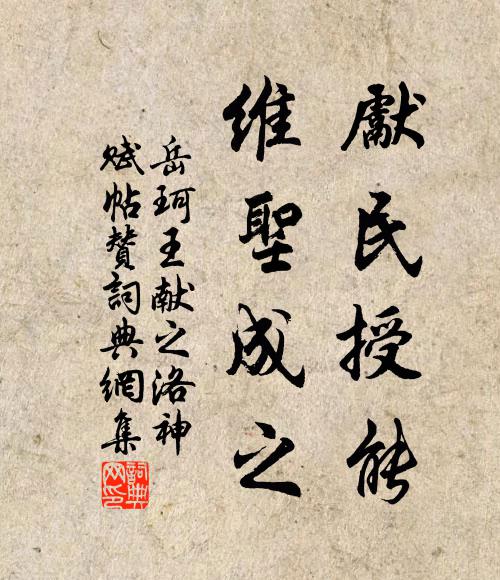 獻民授能
維聖成之
岳珂王献之洛神
賦帖贊詞典網集
詞典網印